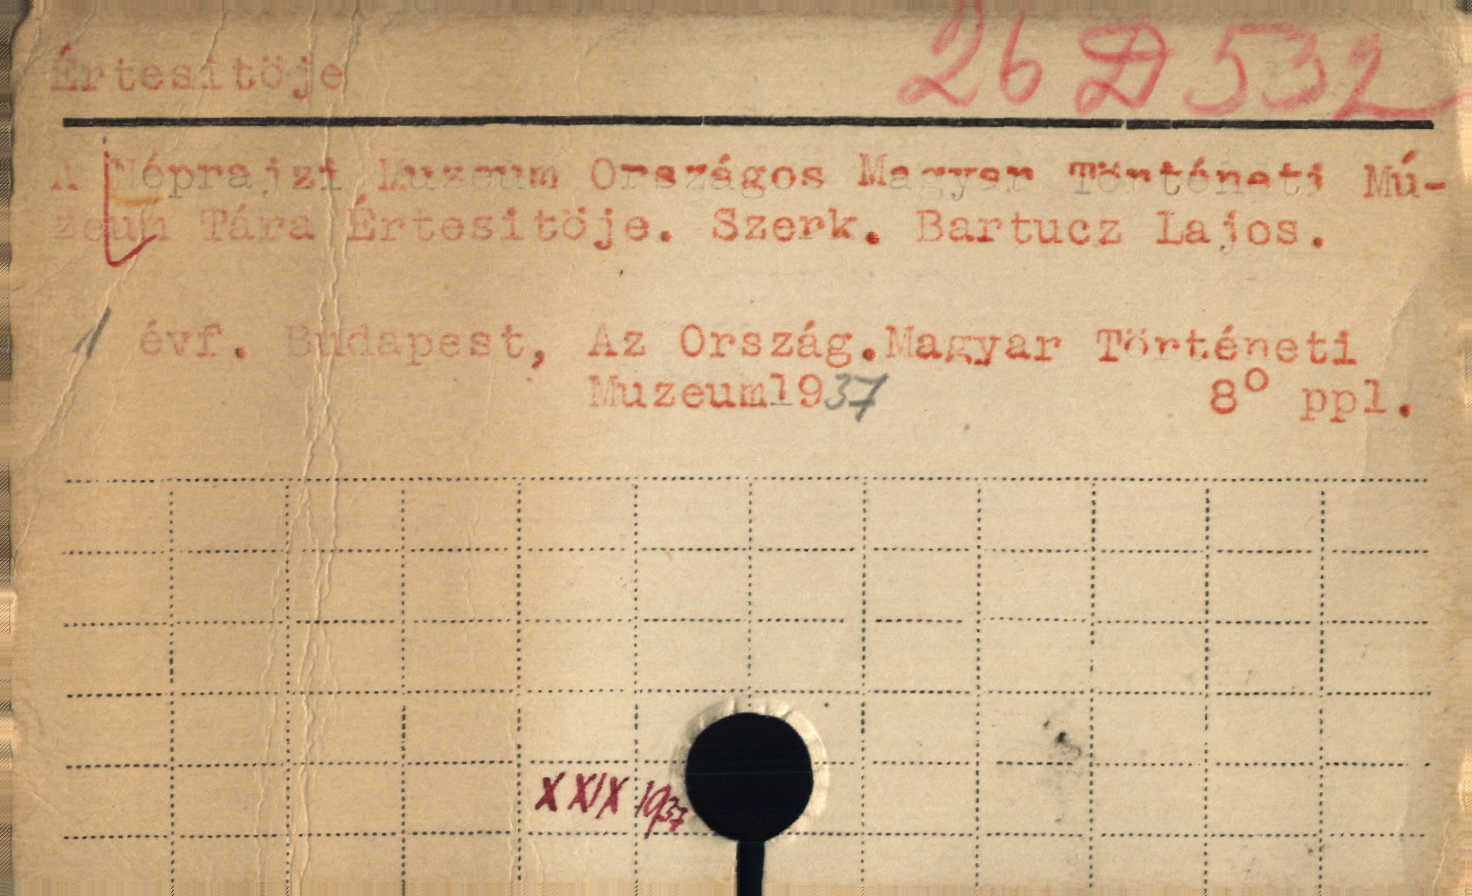 Értesitöje
26 D 532
A Néprajzi Muzeum Országos Magyar Történeti Mú-
zeum Tára Értesitöje. Szerk. Bartucz Lajos.
1 évf. Budapest, Az Ország.Magyar Történeti
Muzeum1937 8° ppl.
XXIX 1937